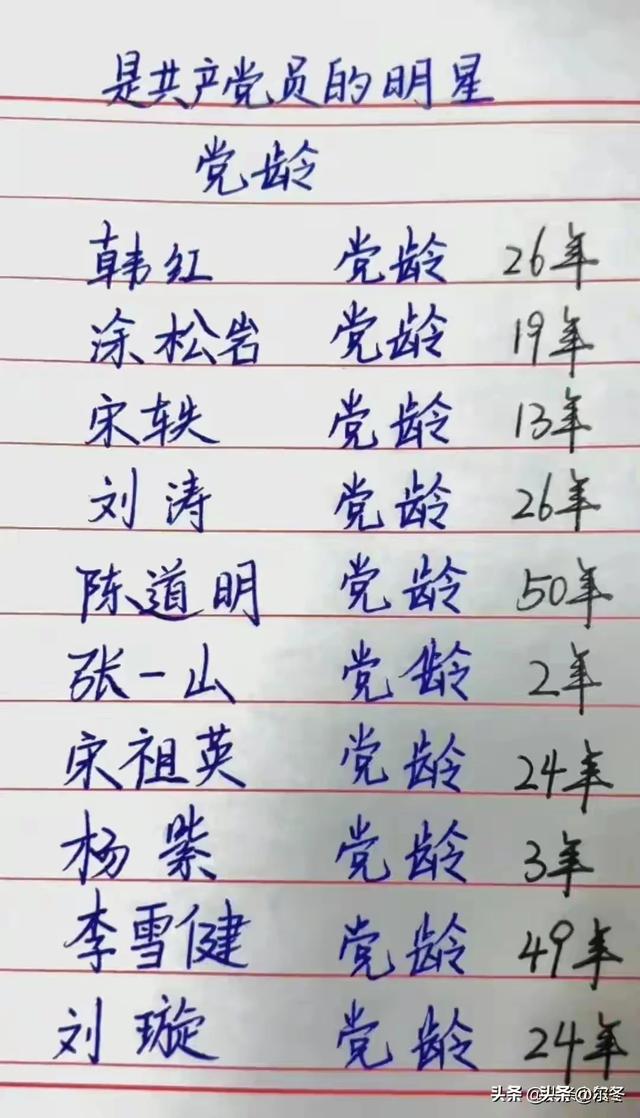 是共产党员的明星
党龄
韩红 党龄 26年
涂松岩 党龄 19年
宋轶 党龄 13年
刘涛 党龄 26年
陈道明 党龄 50年
张一山 党龄 2年
宋祖英 党龄 24年
杨紫 党龄 3年
李雪健 党龄 49年
刘璇 党龄 24年
头条 @头条 @尔冬